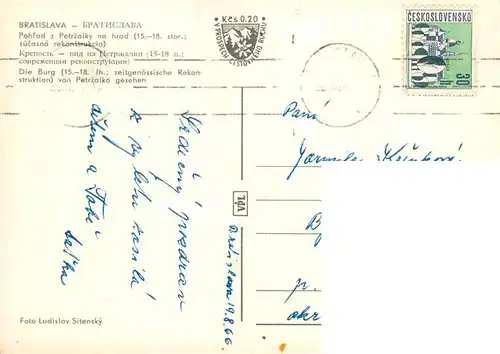 BRATISLAVA – БРАТИСЛАВА
Pohľad z Petržalky na hrad (15.—18. stor.;
súčasná rekonštrukcia)
Крепость — вид из Петржалки (15-18 в.;
современная реконструкция)
Die Burg (15.—18. Jh.; zeitgenössische Rekon-
struktion) von Petržalka gesehen
Kčs 0.20
V PROSPECH CESTOVNÉHO RUCHU
ČESKOSLOVENSKO
30 h
Srdečný pozdrav
z výletu zasílá
dětem a Tobě
Bratislava 19.8.66.
Paní
Jarmila
B
p.
okr
Foto Ladislav Sitenský